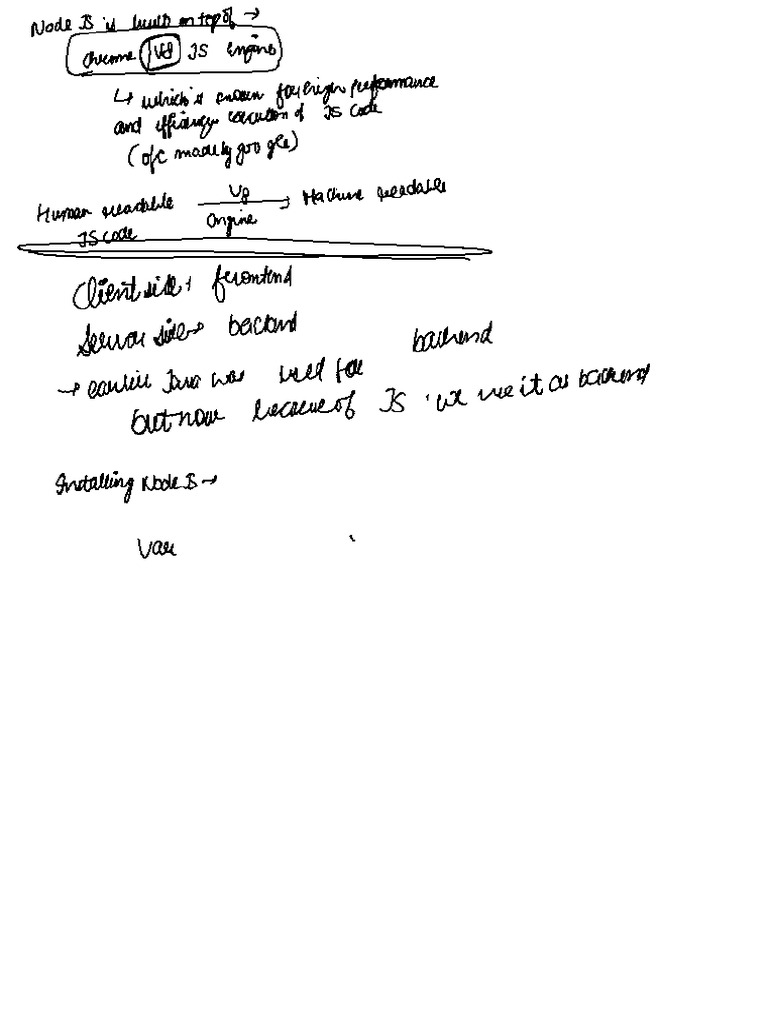 Node JS is built on top of →
Chrome V8 JS Engine
↳ which is known for high performance
and efficiency execution of JS code
(ofc made by google)
Human readable JS code —V8 Engine→ Machine readable
Client side → frontend
Server side → backend
→ earlier Java was used for backend
but now because of JS we use it as backend
Installing Node JS →
Var